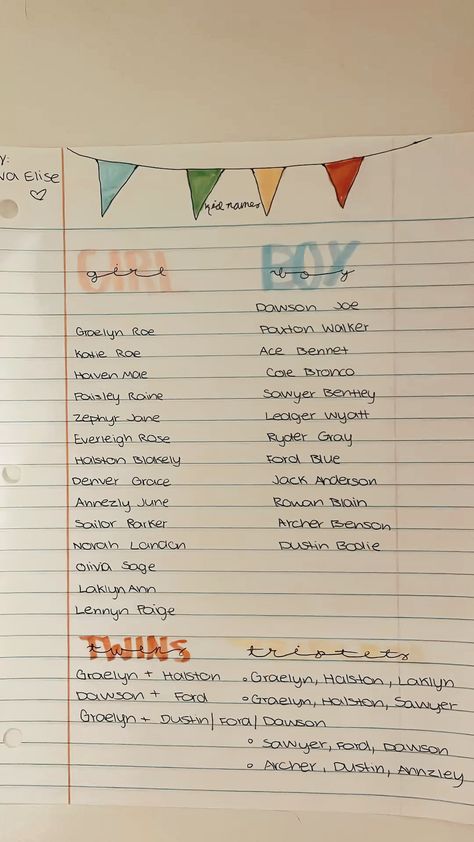 Elise
kid names
GIRL
girl
BOY
boy
Graelyn Rae
Katie Rae
Haven Mae
Paisley Raine
Zephyr Jane
Everleigh Rose
Halston Blakely
Denver Grace
Annezly June
Sailor Parker
Norah Landon
Olivia Sage
Laklyn Ann
Lennyn Paige
Dawson Joe
Paxton Walker
Ace Bennet
Cole Bronco
Sawyer Bentley
Ledger Wyatt
Ryder Gray
Ford Blue
Jack Anderson
Rowan Blain
Archer Benson
Dustin Bodie
TWINS
twins
Graelyn + Halston
Dawson + Ford
Graelyn + Dustin/Ford/Dawson
triplets
• Graelyn, Halston, Laklyn
• Graelyn, Halston, Sawyer
• Sawyer, Ford, Dawson
• Archer, Dustin, Annzley